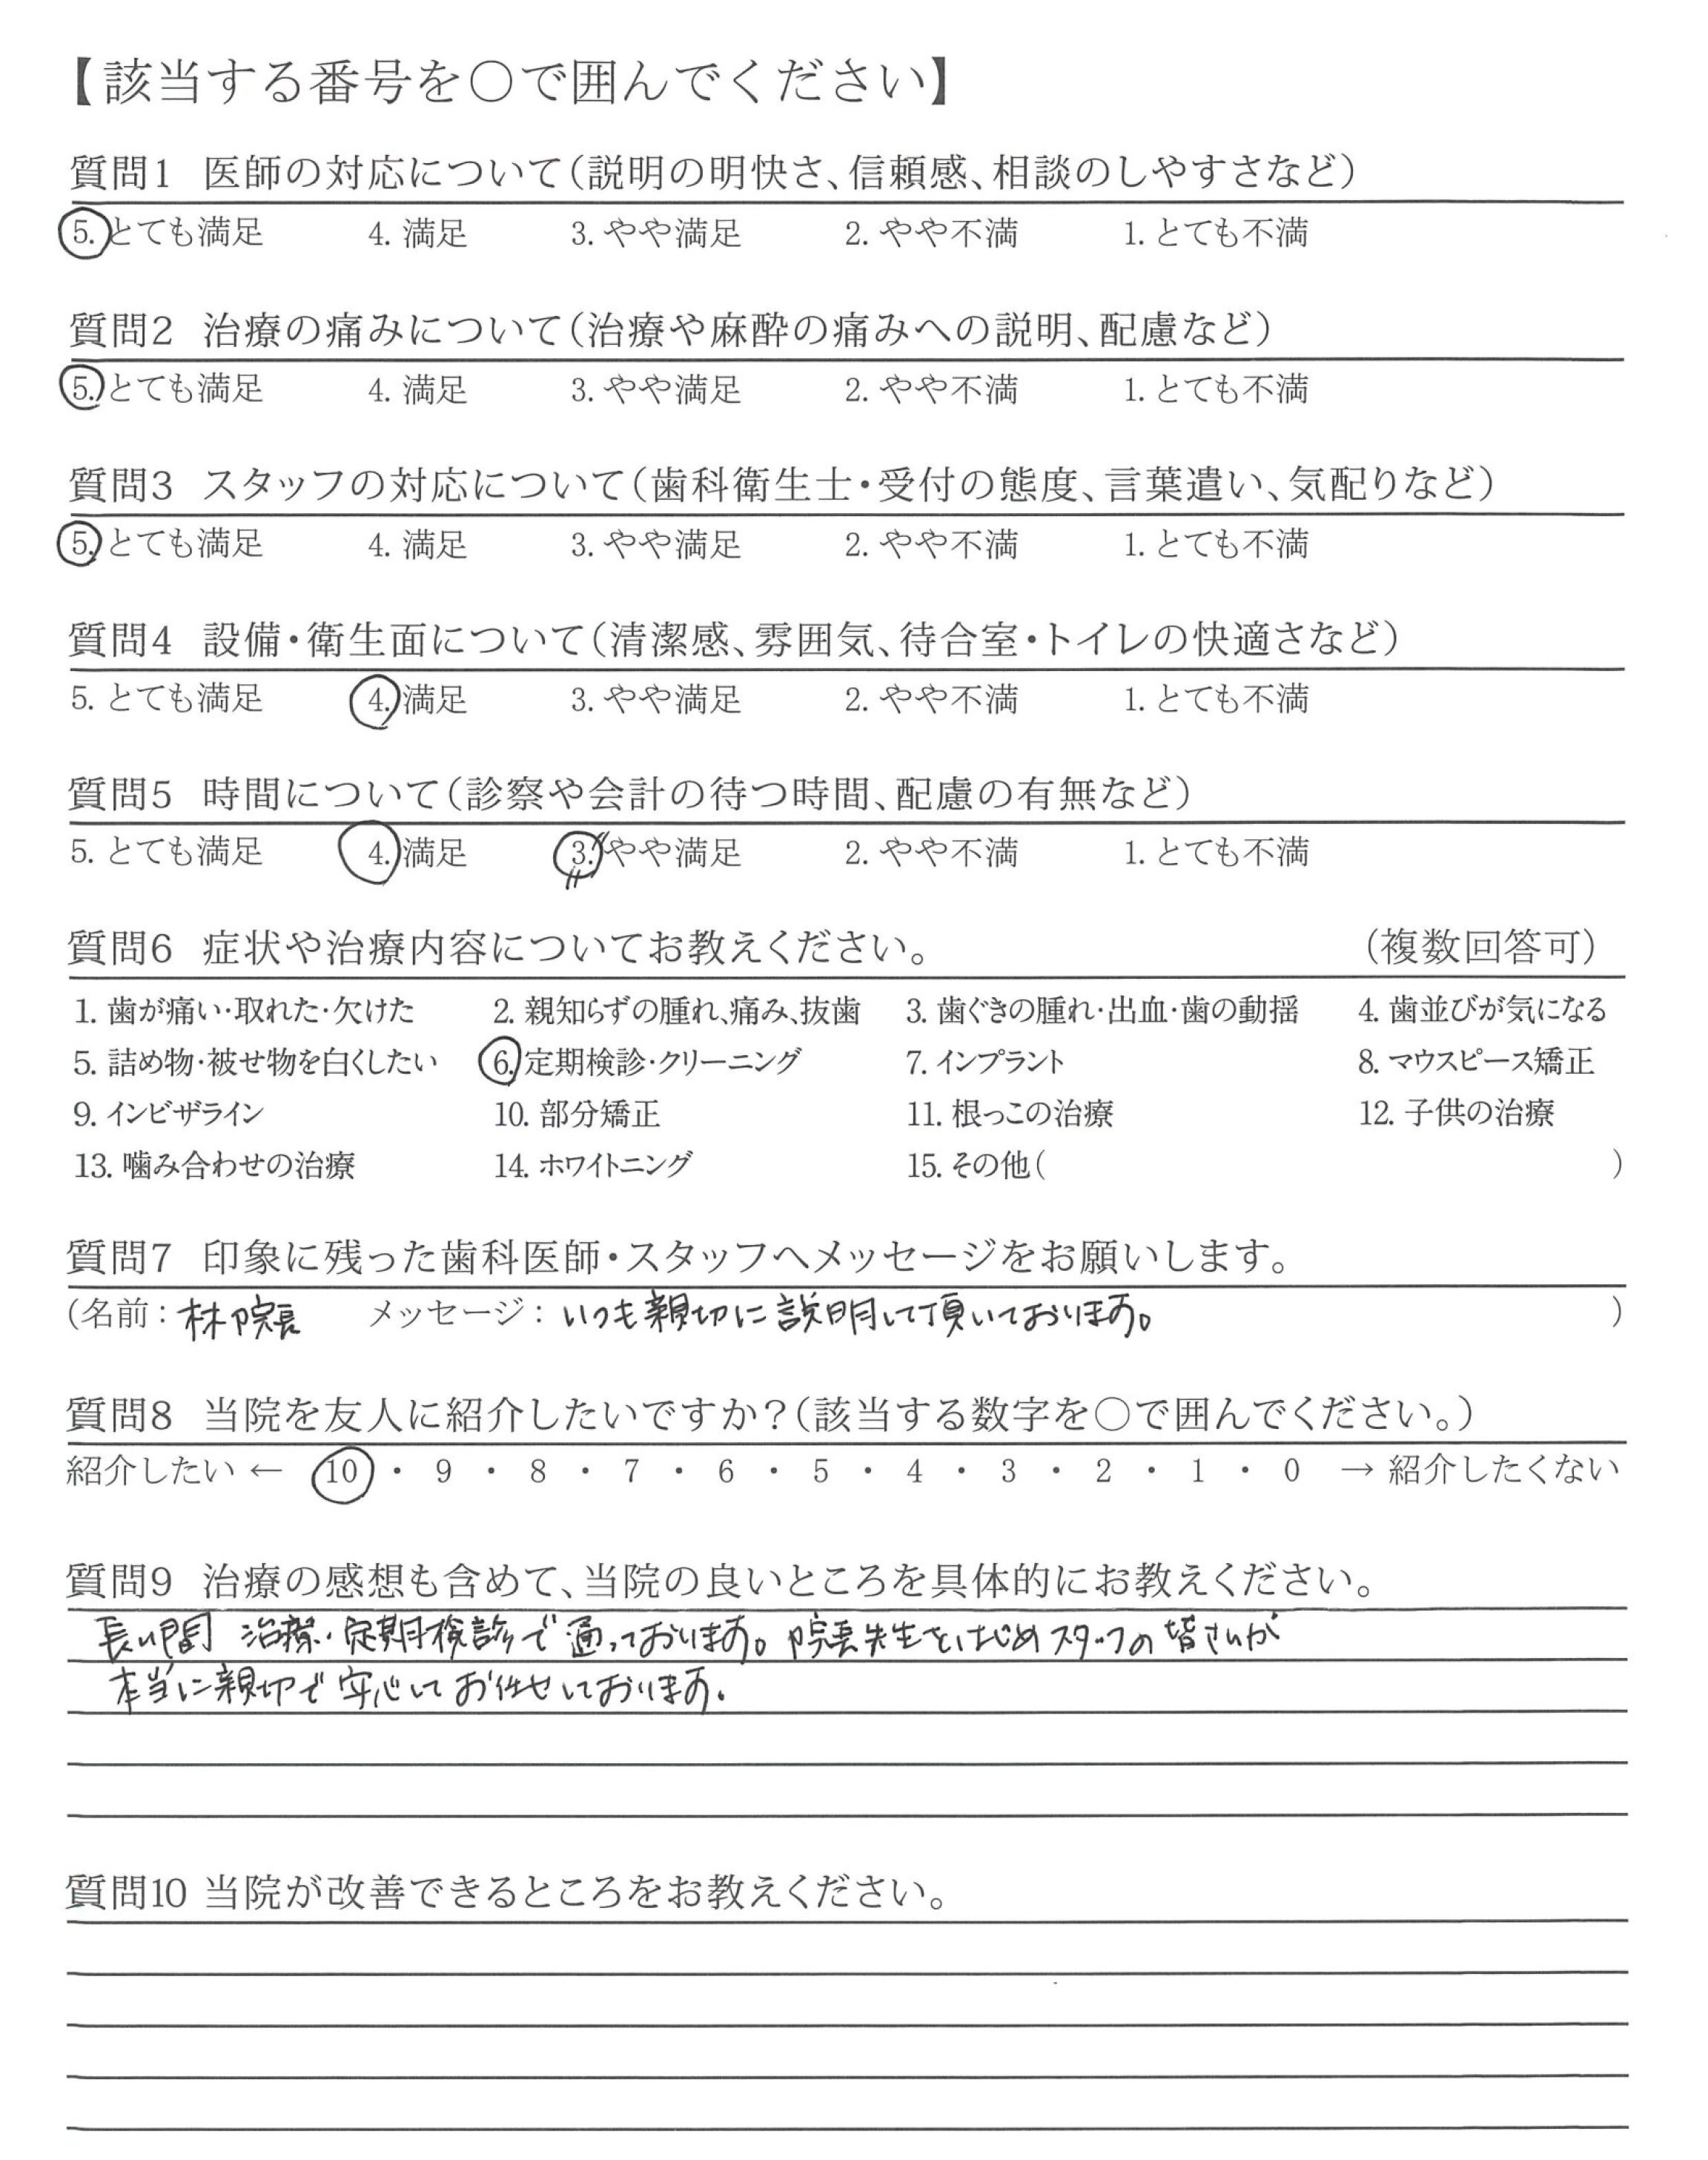 【該当する番号を〇で囲んでください】
質問1 医師の対応について（説明の明快さ、信頼感、相談のしやすさなど）
5. とても満足 4. 満足 3. やや満足 2. やや不満 1. とても不満
質問2 治療の痛みについて（治療や麻酔の痛みへの説明、配慮など）
5. とても満足 4. 満足 3. やや満足 2. やや不満 1. とても不満
質問3 スタッフの対応について（歯科衛生士・受付の態度、言葉遣い、気配りなど）
5. とても満足 4. 満足 3. やや満足 2. やや不満 1. とても不満
質問4 設備・衛生面について（清潔感、雰囲気、待合室・トイレの快適さなど）
5. とても満足 4. 満足 3. やや満足 2. やや不満 1. とても不満
質問5 時間について（診察や会計の待つ時間、配慮の有無など）
5. とても満足 4. 満足 3. やや満足 2. やや不満 1. とても不満
質問6 症状や治療内容についてお教えください。 （複数回答可）
1. 歯が痛い・取れた・欠けた 2. 親知らずの腫れ、痛み、抜歯 3. 歯ぐきの腫れ・出血・歯の動揺 4. 歯並びが気になる
5. 詰め物・被せ物を白くしたい 6. 定期検診・クリーニング 7. インプラント 8. マウスピース矯正
9. インビザライン 10. 部分矯正 11. 根っこの治療 12. 子供の治療
13. 噛み合わせの治療 14. ホワイトニング 15. その他（ ）
質問7 印象に残った歯科医師・スタッフへメッセージをお願いします。
（名前：林院長 メッセージ：いつも親切に説明して頂いております。 ）
質問8 当院を友人に紹介したいですか？（該当する数字を〇で囲んでください。）
紹介したい ← 10 ・ 9 ・ 8 ・ 7 ・ 6 ・ 5 ・ 4 ・ 3 ・ 2 ・ 1 ・ 0 → 紹介したくない
質問9 治療の感想も含めて、当院の良いところを具体的にお教えください。
長い間 治療・定期検診で通っております。院長先生をはじめスタッフの皆さんが
本当に親切で安心してお任せしております。
質問10 当院が改善できるところをお教えください。